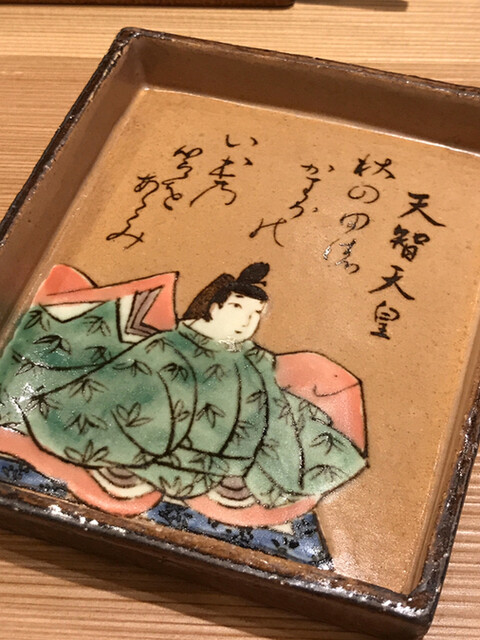 天智天皇
秋の田の
かりほの
いほ乃
苫を
あらみ